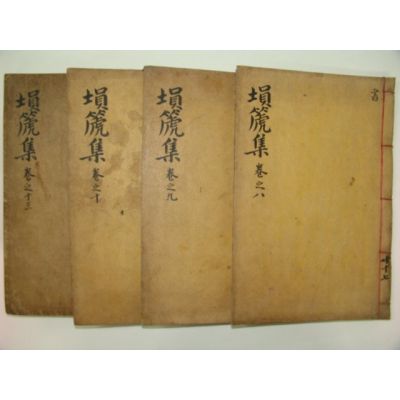 塤篪集
卷之八
塤篪集
卷之九
塤篪集
卷之十
塤篪集
卷之十三